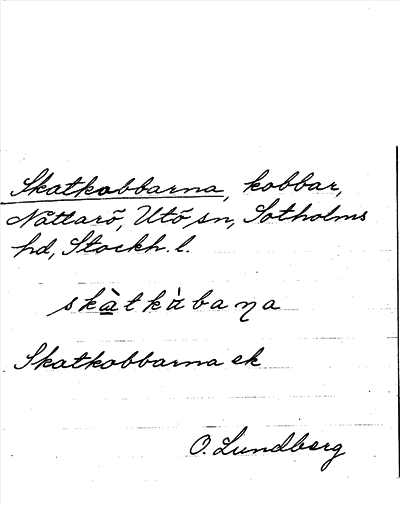 Skatkobbarna, kobbar,
Nåttarö, Utö sn, Sotholms
hd, Stockh. l.
skàtkùbaṇa
Skatkobbarna ek
O. Lundberg